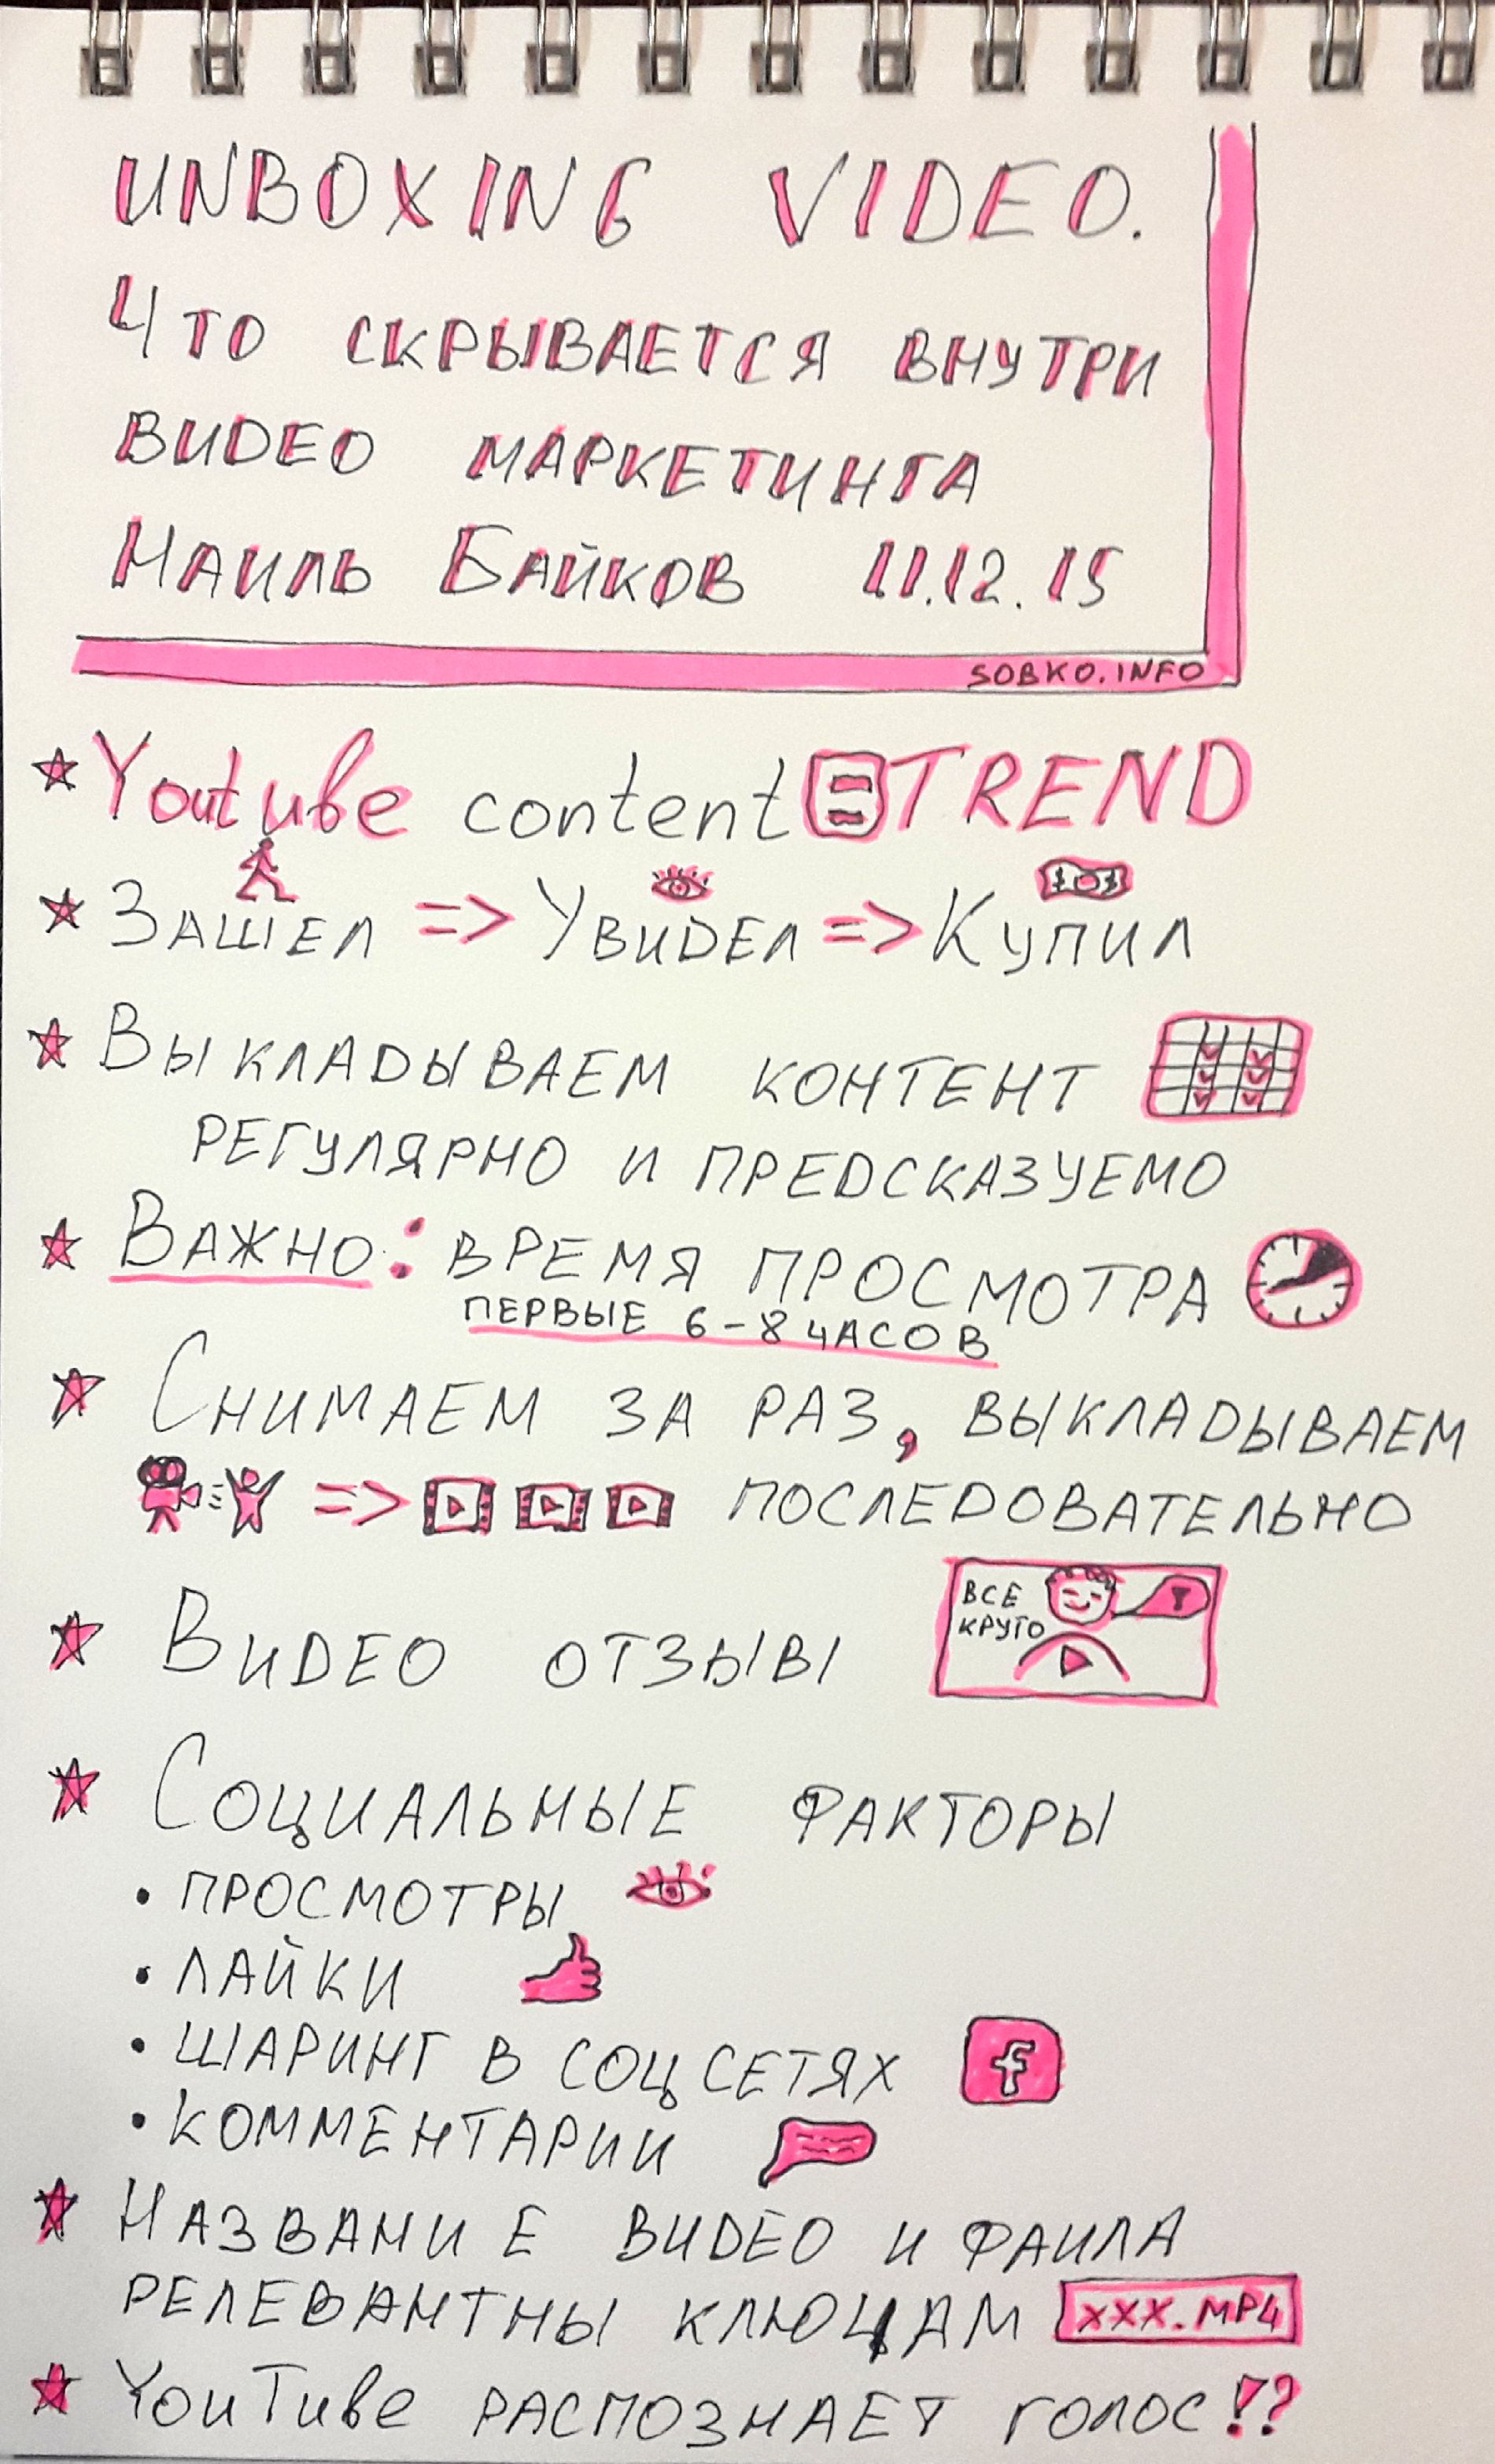 UNBOXING VIDEO.
Что скрывается внутри
видео маркетинга
Наиль Байков 11.12.15
SOBKO.INFO
Youtube content = TREND
Зашел => Увидел => Купил
Выкладываем контент
регулярно и предсказуемо
Важно: время просмотра
первые 6-8 часов
Снимаем за раз, выкладываем
=> последовательно
Все
круто
Видео отзывы
Социальные факторы
• просмотры
• лайки
• шаринг в соц сетях
f
• комментарии
Название видео и файла
релевантны ключам xxx.MP4
YouTube распознает голос!?